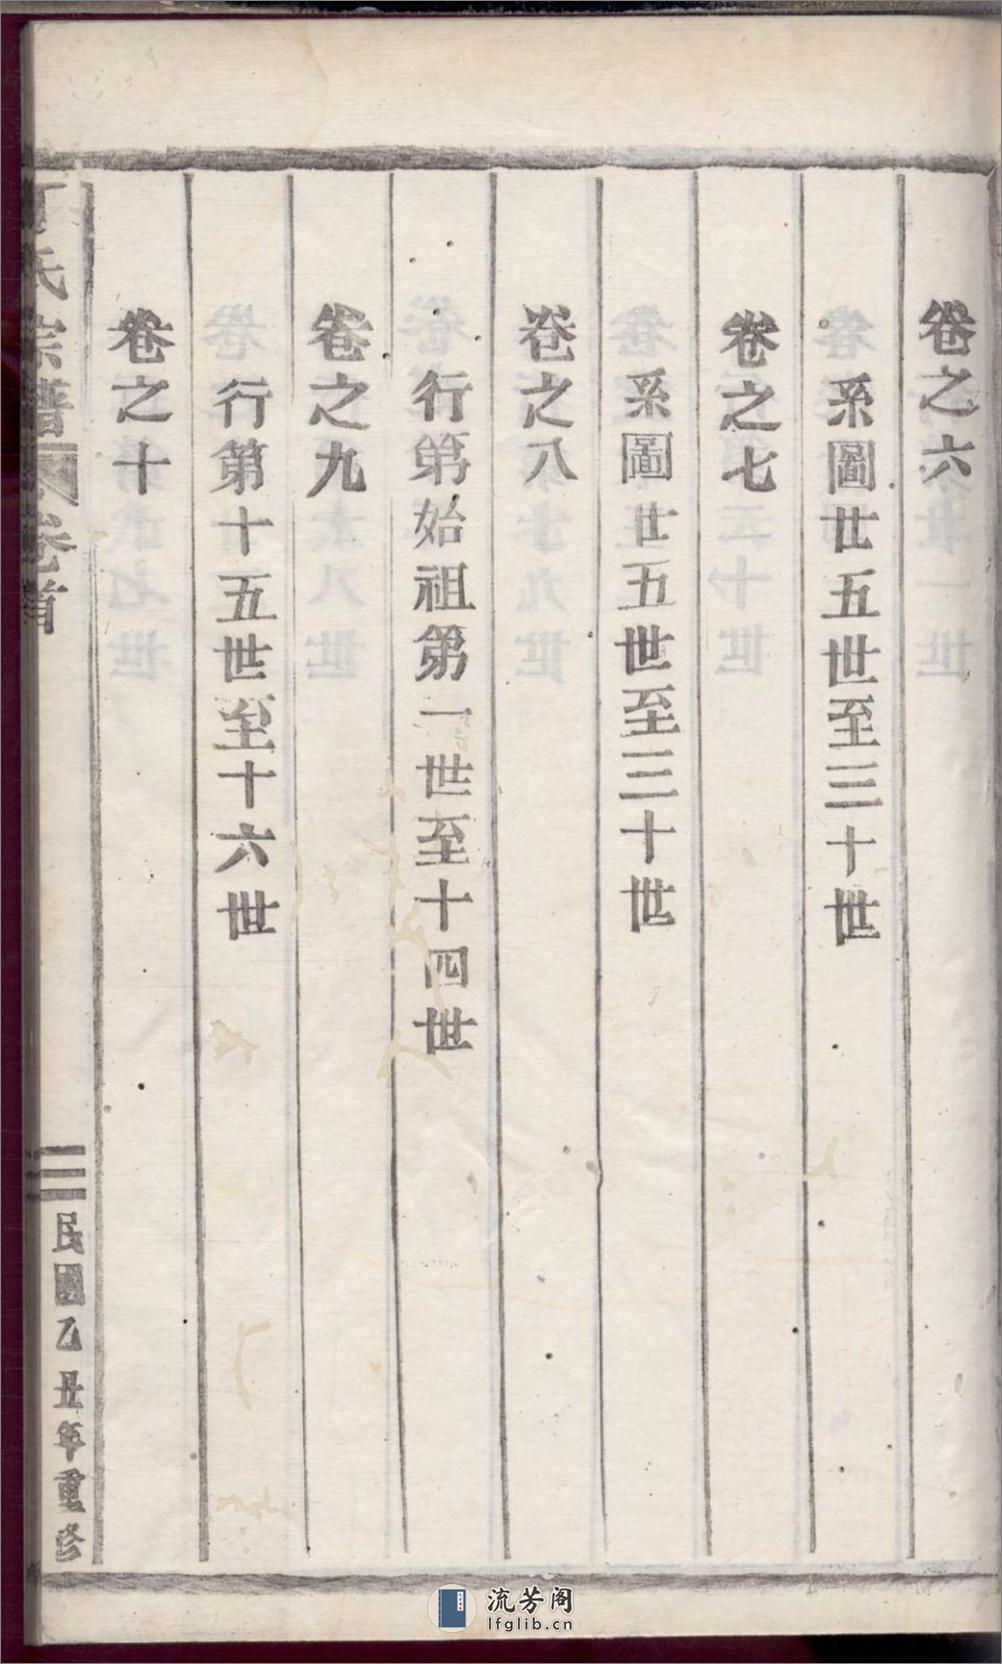 卷之六
系圖世五世至三十世
卷之七
系圖世五世至三十世
卷之八
行第始祖第一世至十四世
卷之九
行第十五世至十六世
卷之十
丁氏宗譜
卷首
民國乙丑年重修
流芳阁
lfglib.cn